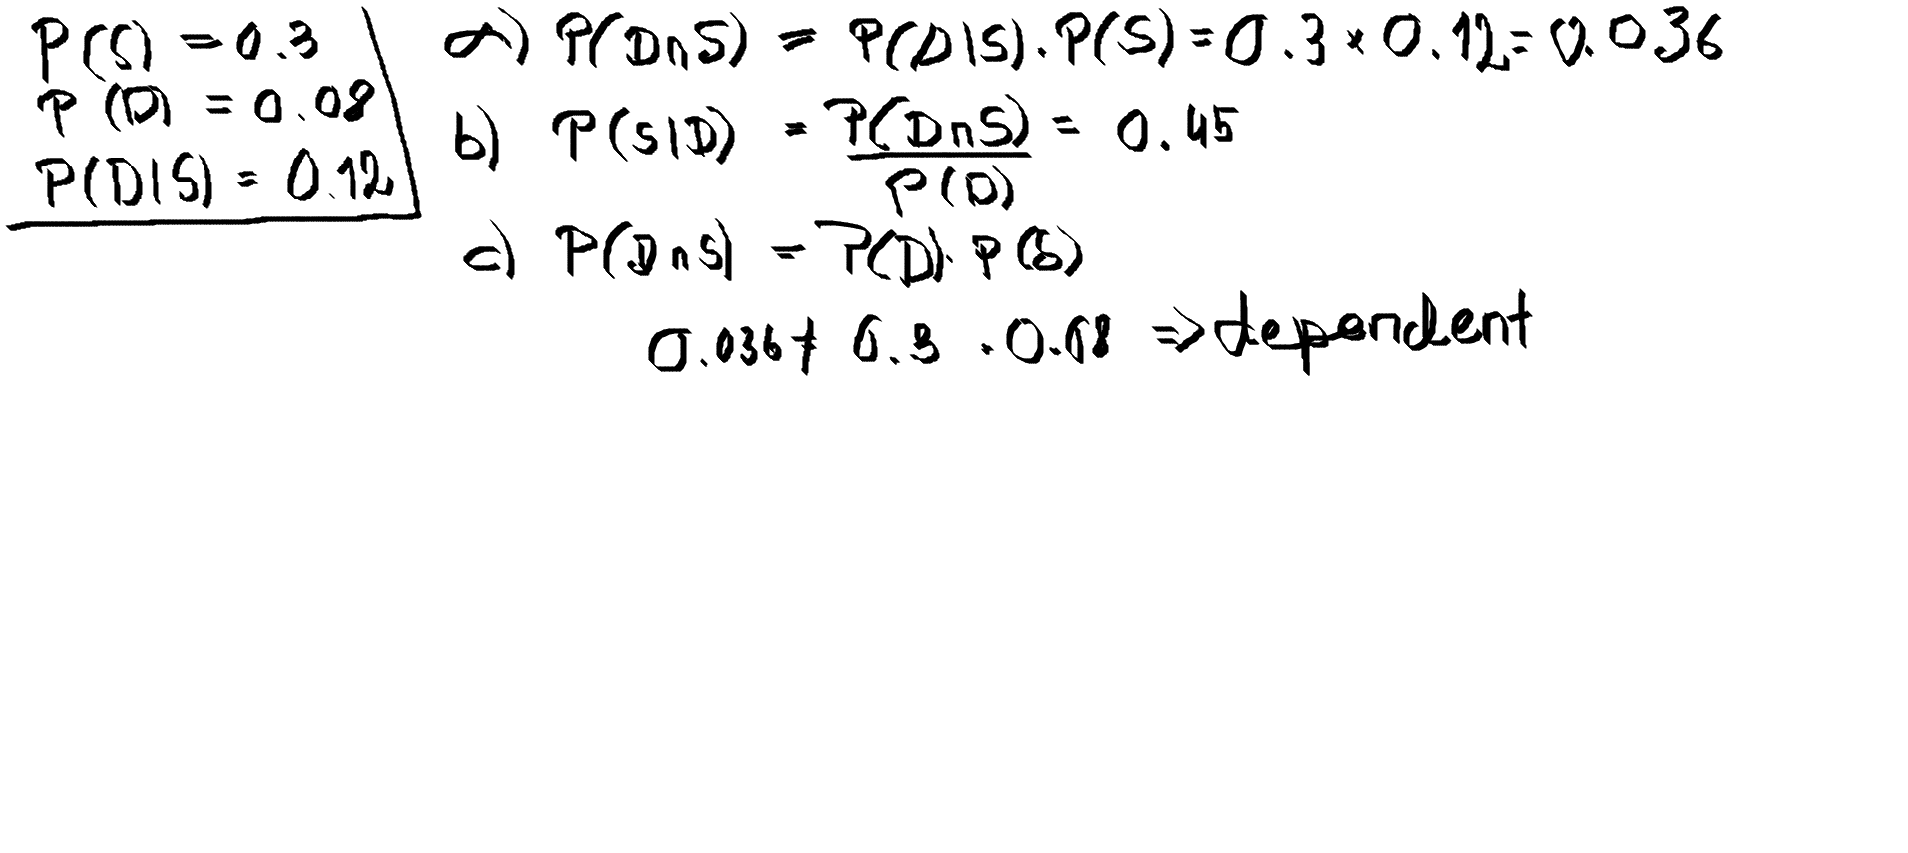 P(S) = 0.3
P(D) = 0.08
P(D|S) = 0.12
a) P(D∩S) = P(D|S).P(S) = 0.3 × 0.12 = 0.036
b) P(S|D) = P(D∩S) = 0.45
P(D)
c) P(D∩S) = P(D). P(S)
0.036 ≠ 0.3 . 0.08 ⇒ dependent